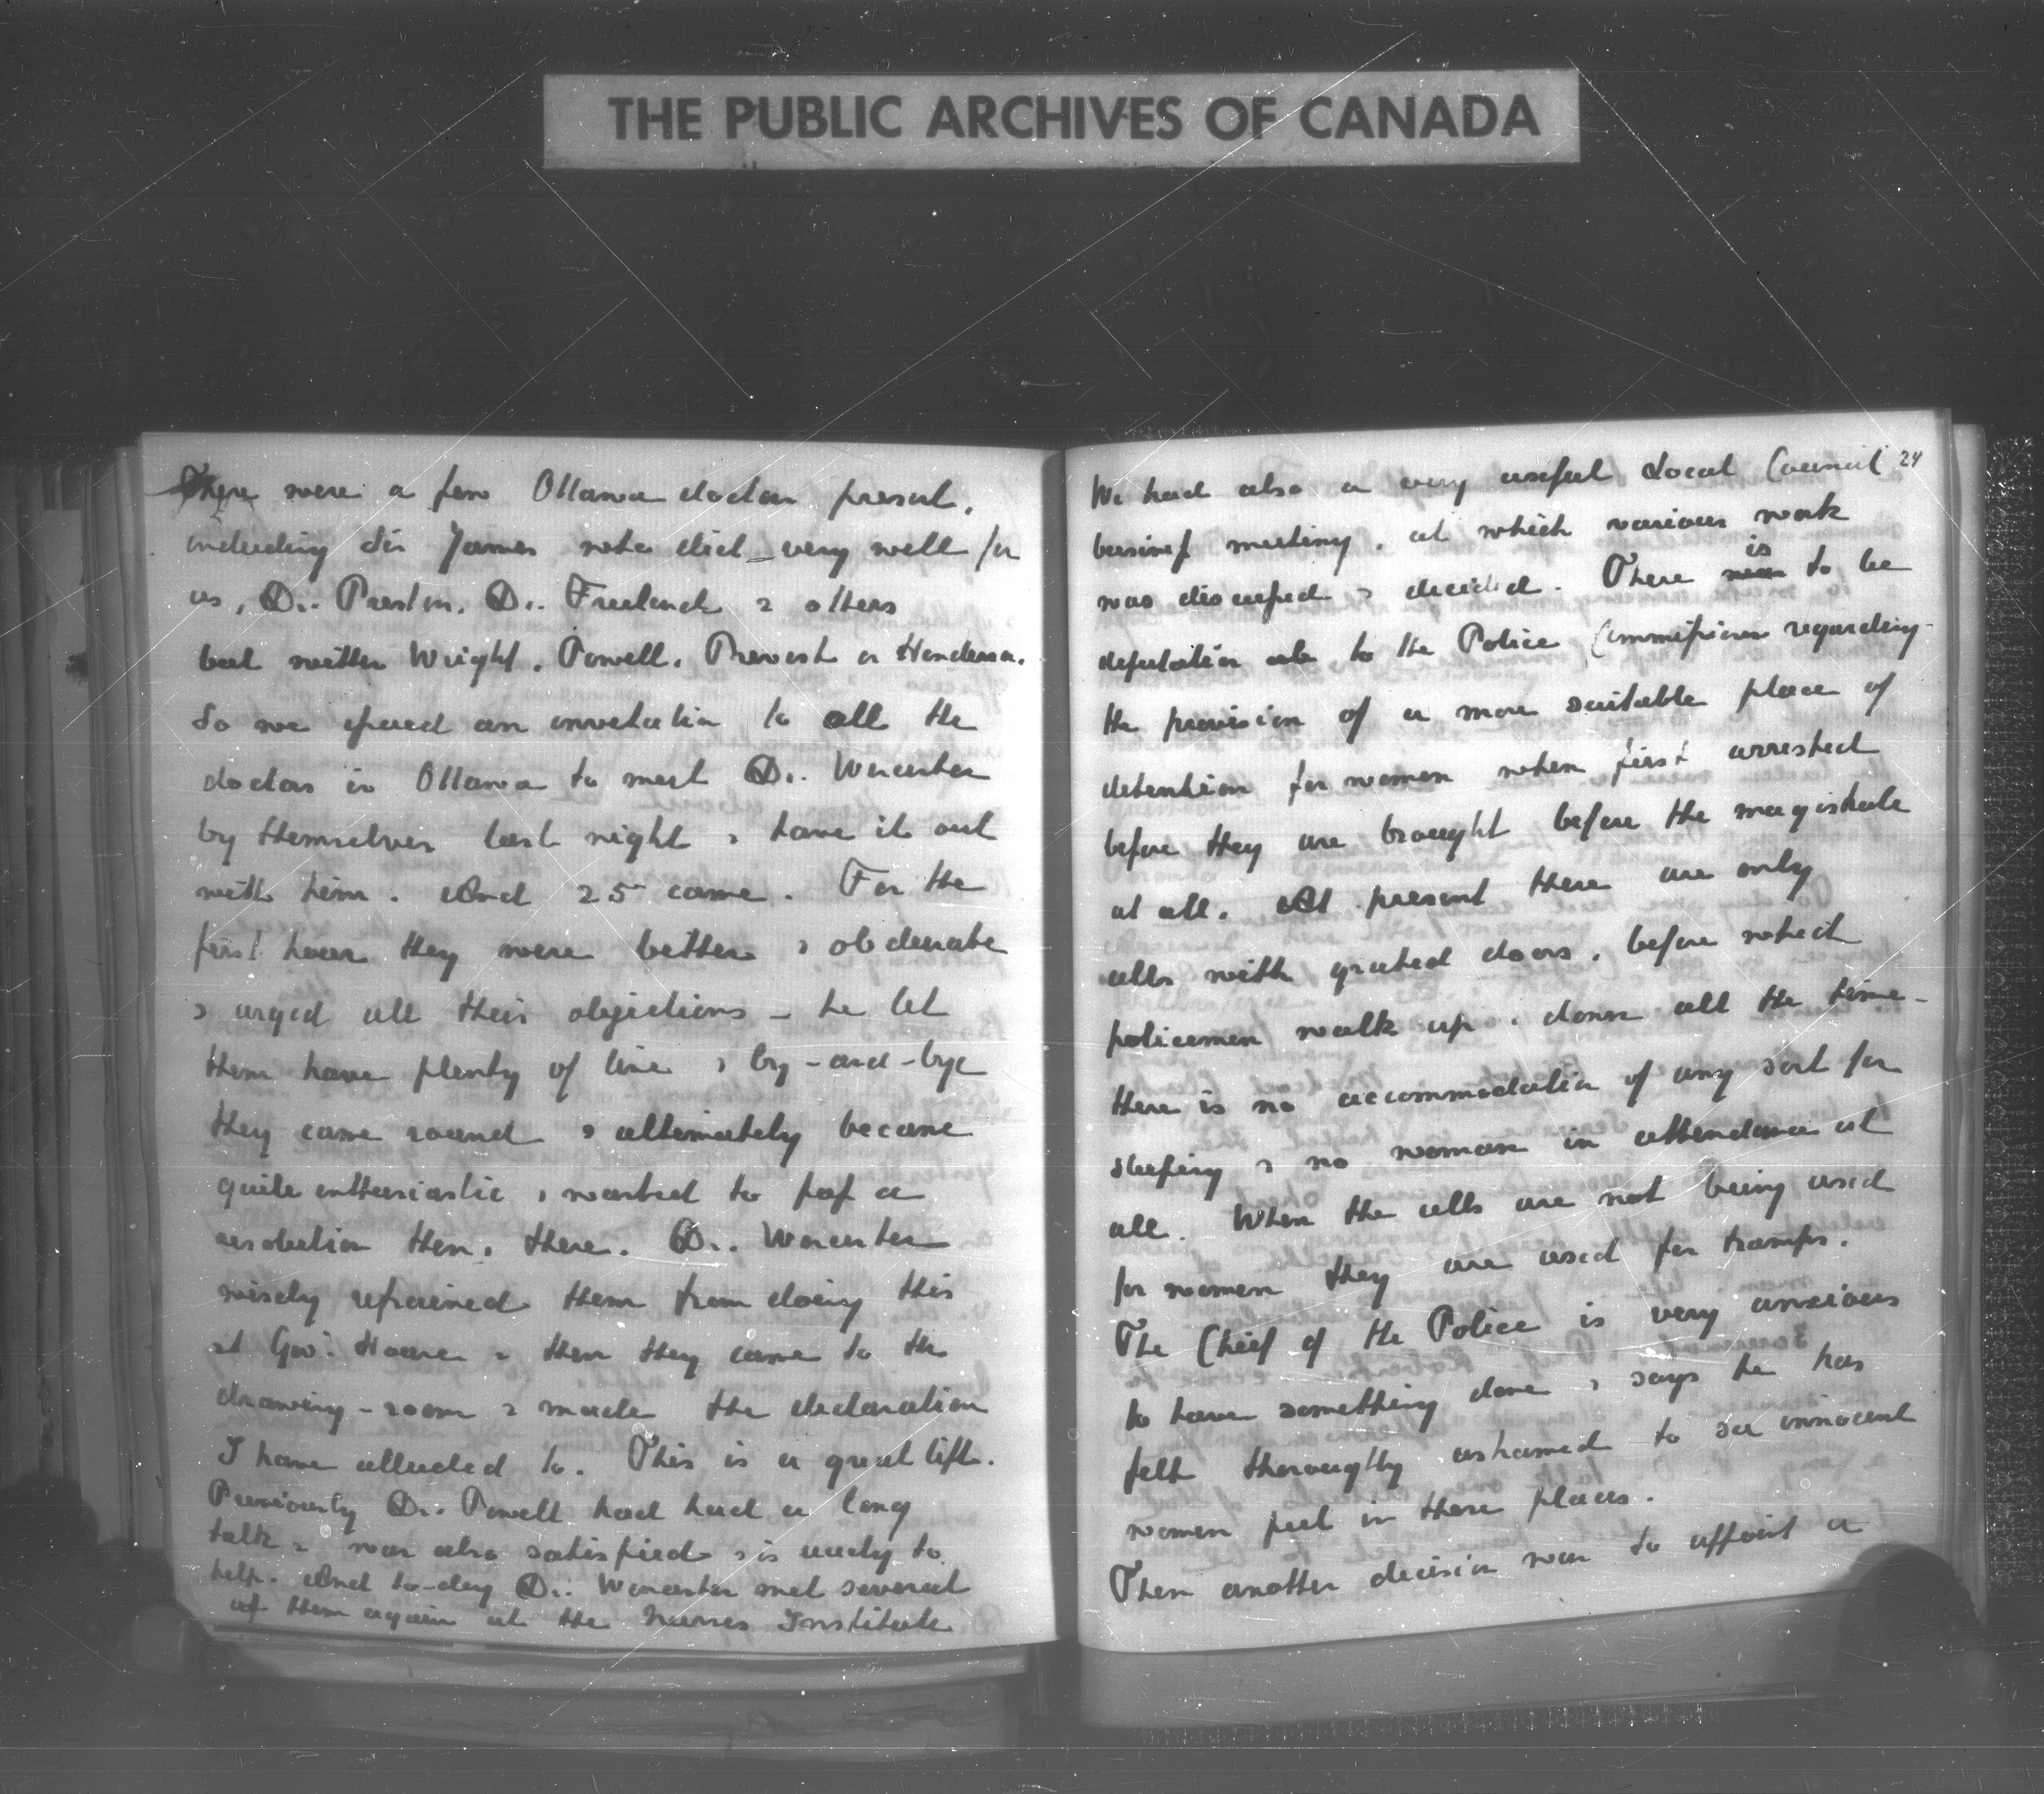 THE PUBLIC ARCHIVES OF CANADA
There were a few Ottawa doctors present,
including Sir James who did very well for
us, Dr. Preston, Dr. Freeland & others
but neither Wright, Powell, Prevost or Henderson.
So we issued an invitation to all the
doctors in Ottawa to meet Dr. Worcester
by themselves last night & have it out
with him. And 25 came. For the
first hour they were bitter & obdurate
& urged all their objections – he let
them have plenty of line & by-and-bye
they came round & ultimately became
quite enthusiastic & wanted to pass a
resolution then & there. Dr. Worcester
wisely refrained them from doing this
at Gov: House & then they came to the
drawing-room & made the declaration
I have alluded to. This is a great lift.
Previously Dr. Powell had had a long
talk & was also satisfied & is ready to
help. And to-day Dr. Worcester met several
of them again at the Nurses Institute
24
We had also a very useful Local Council
business meeting, at which various work
was discussed & decided. There was is to be
deputation to the Police Commissioner regarding
the provision of a more suitable place of
detention for women when first arrested
before they are brought before the magistrate
at all. At present there are only
cells with grated doors, before which
policemen walk up & down all the time –
there is no accommodation of any sort for
sleeping & no woman in attendance at
all. When the cells are not being used
for women they are used for tramps.
The Chief of the Police is very anxious
to have something done & says he has
felt thoroughly ashamed to see innocent
women put in these places.
Then another decision was to appoint a